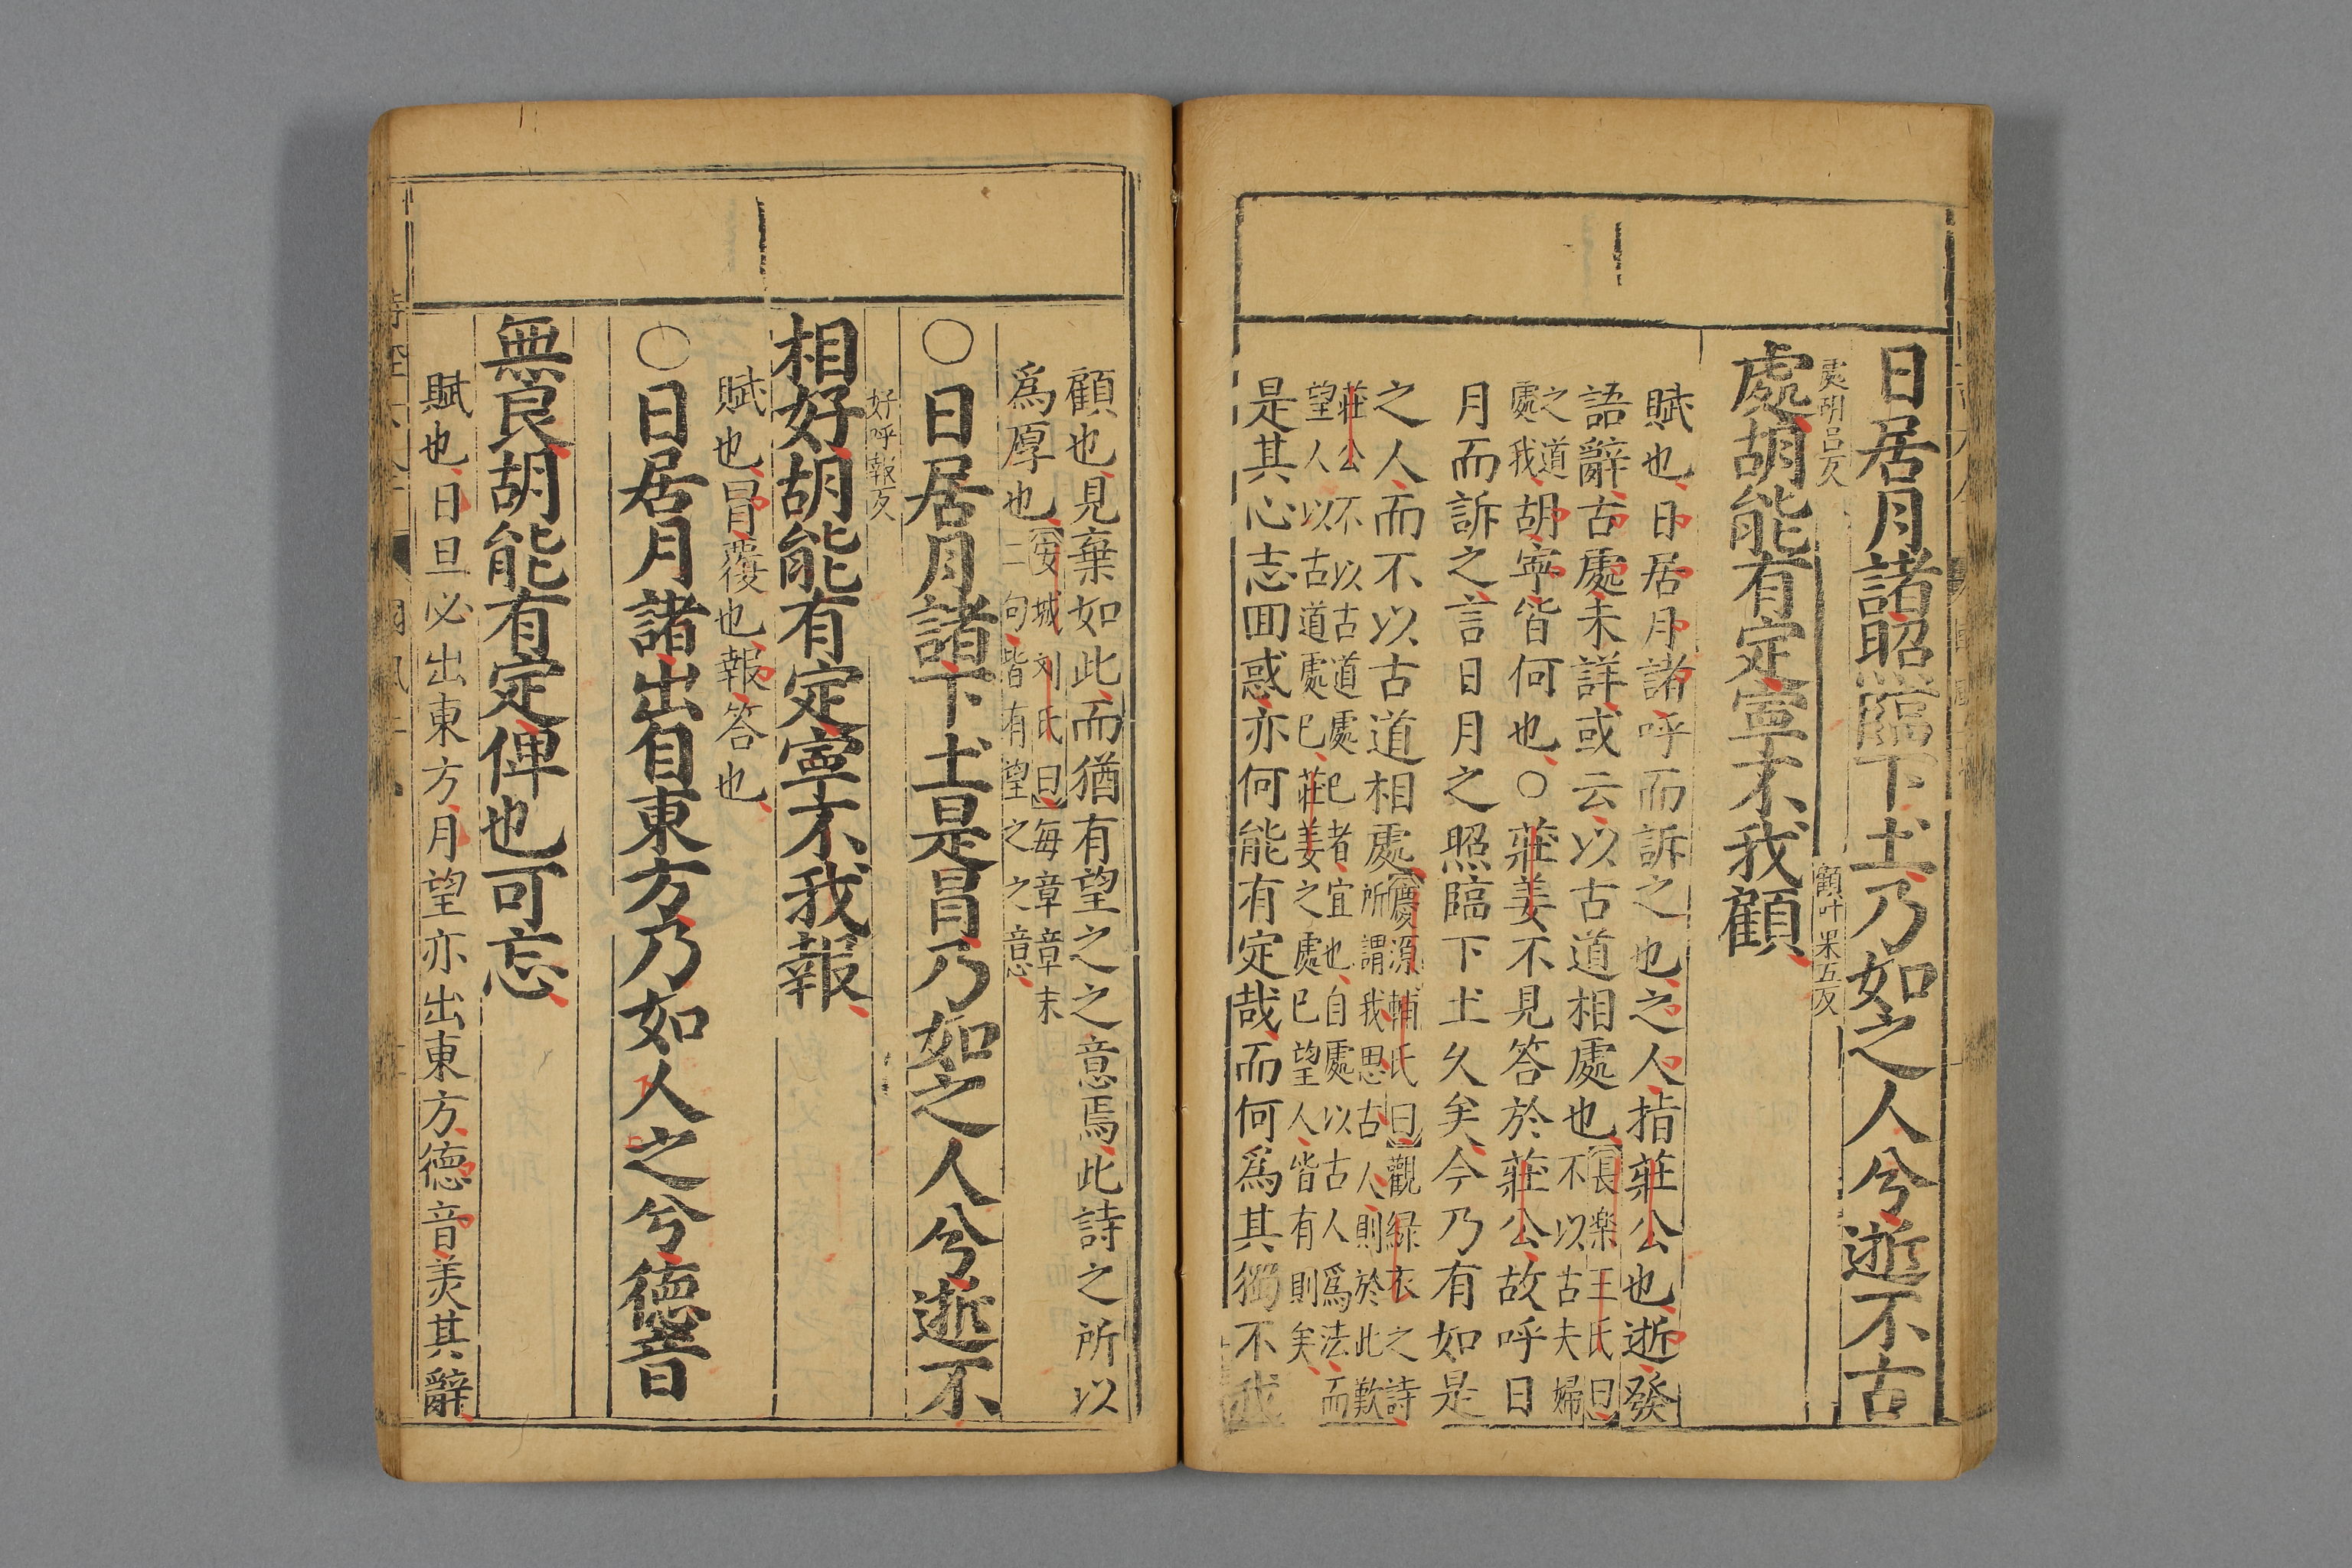 日居月諸照臨下土乃如之人兮逝不古
處胡呂反
處胡能有定寧不我顧
顧叶果五反
賦也日居月諸呼而訴之也之人指莊公也逝發
語辭古處未詳或云以古道相處也
長楽王氏曰
不以古夫婦
之道
處我
胡寧皆何也○莊姜不見答於莊公故呼日
月而訴之言日月之照臨下土久矣今乃有如是
之人而不以古道相處
慶源輔氏曰觀緑衣之詩
所謂我思古人則於此歎
莊公不以古道處已者宜也自處以古人為法而
望人以古道處已莊姜之處已望人皆有則矣
是其心志囬惑亦何能有定哉而何爲其獨不我
顧也見棄如此而猶有望之之意焉此詩之所以
爲厚也
安城刘氏曰每章章末
二句皆有望之之意
○日居月諸下土是冒乃如之人兮逝不
好呼報反
相好胡能有定寧不我報
賦也冒覆也報答也
○日居月諸出自東方乃如人之兮德音
無良胡能有定俾也可忘
賦也日旦必出東方月望亦出東方德音美其辭